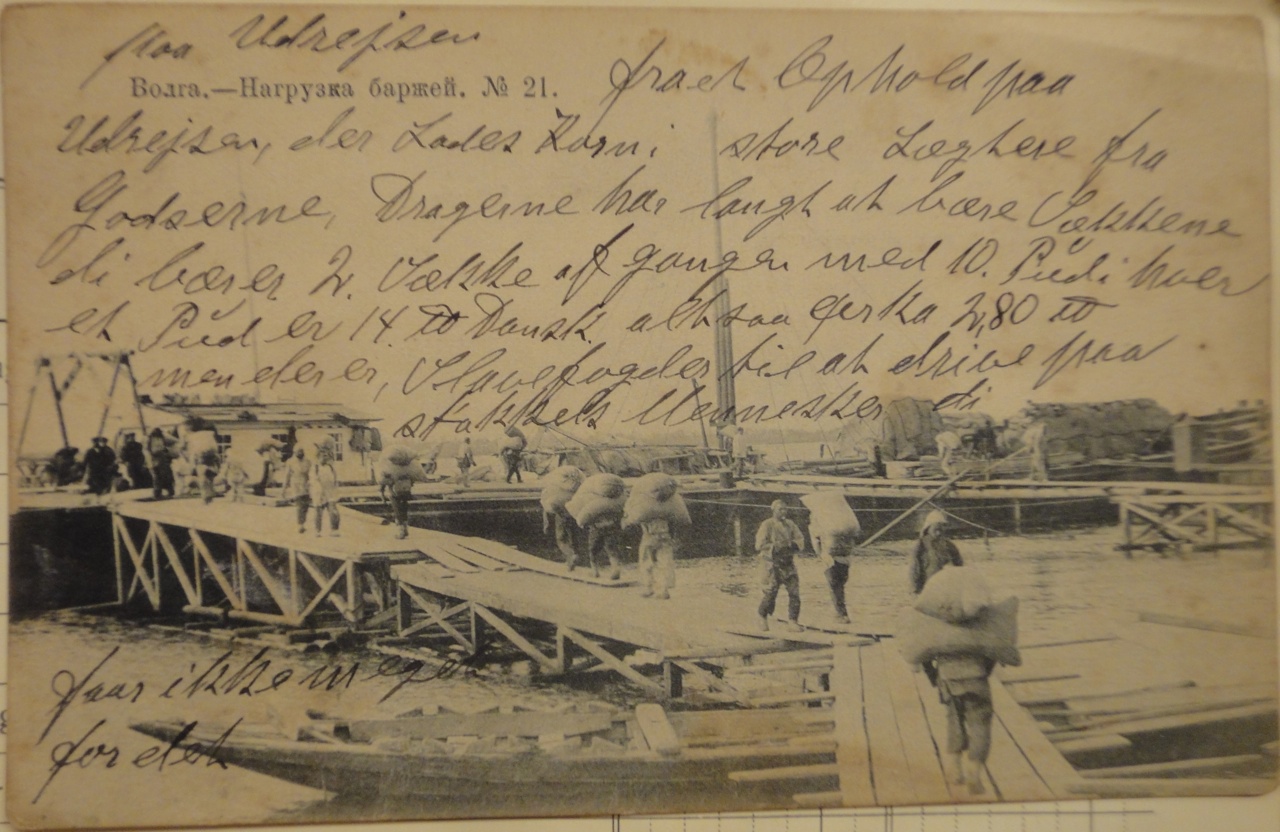 paa Udrejsen
Волга.—Нагрузка баржей. № 21.
fra et Ophold paa
Udrejsen, der Lades Korn i store Lægtere fra
Godserne, Dragerne har langt at bære Sækkene
di bærer 2. Sække af gangen med 10. Pud i hver
et Pud er 14. ℔ Dansk. altsaa cirka 2,80 ℔
men der er, Slavefogder til at drive paa
stakkels Mennesker di
faar ikke meget
for det